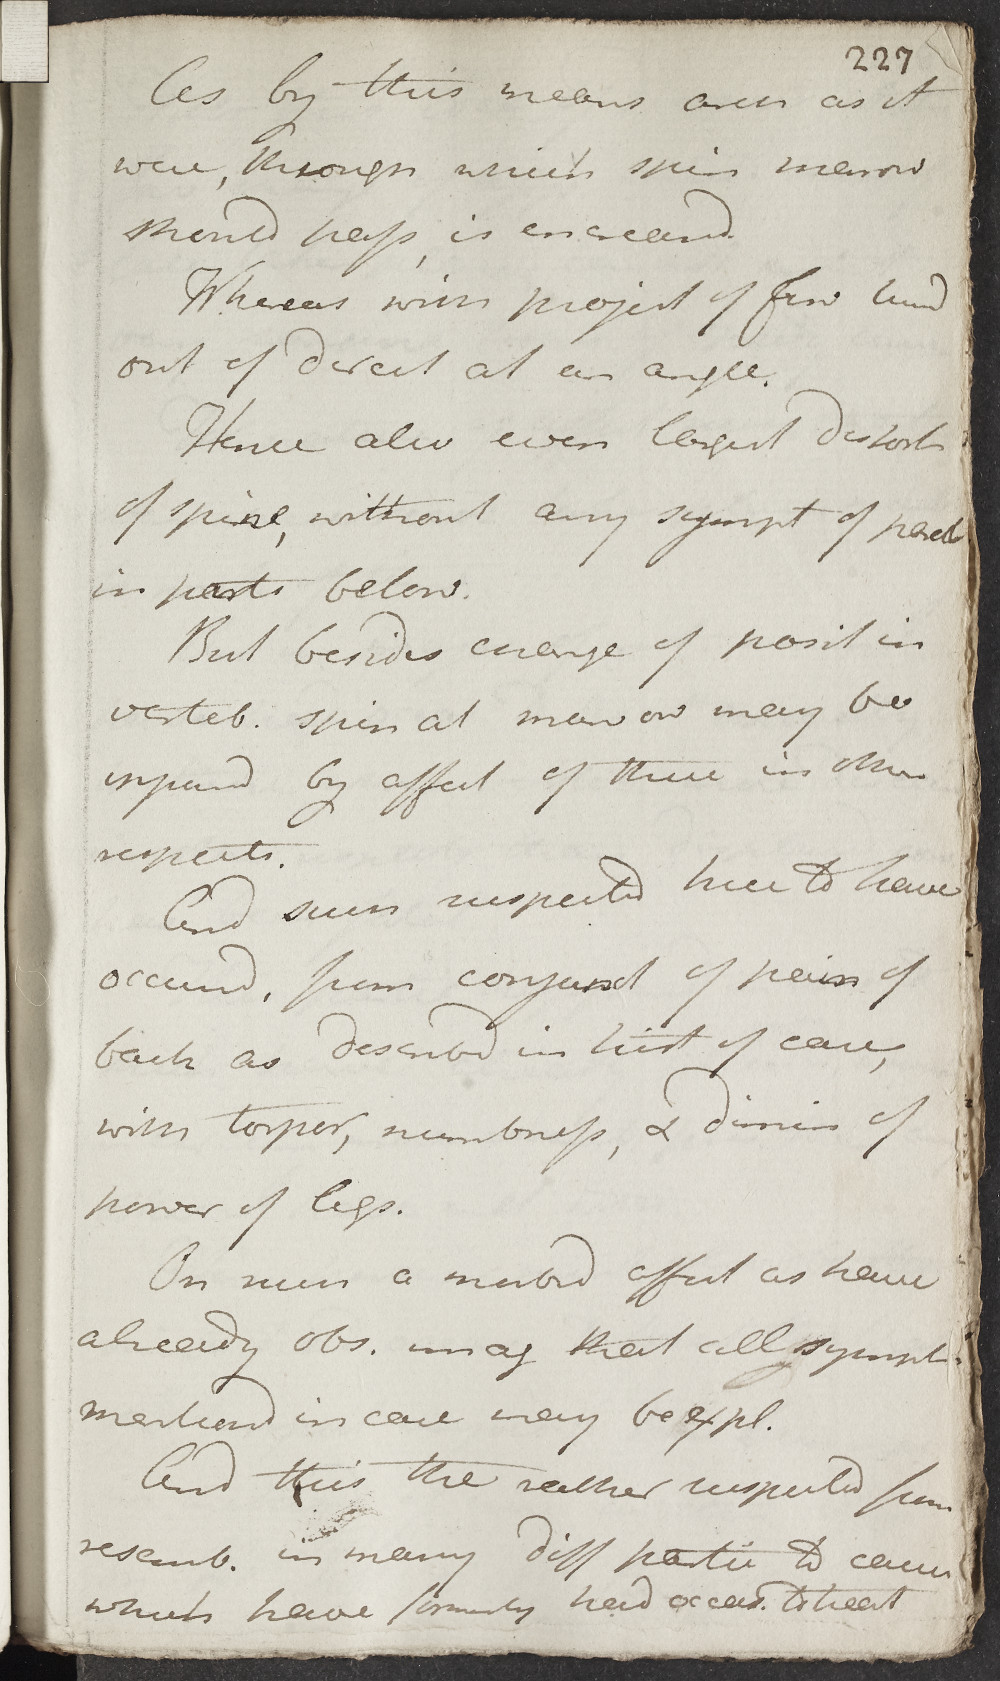 227
As by this means area as it
were, through which spin marrow
should pass, is encreasd.
Whereas with project of few turnd
out of direct at an angle.
Hence also even largest distort
of spine, without any sympt of paral
in parts below.
But besides change of posit in
verteb. spinal marrow may be
injurd by affect of these in other
respects.
And such suspected here to have
occurrd, from conjunct of pain of
back as describd in hist of case,
with torpor, numbness, & dimin of
power of legs.
On such a morbid affect as have
already obs. imag that all sympt.
mentiond in case may be expl.
And this the rather suspected from
resemb. in many diff partic to cases
which have formerly had occas. to treat